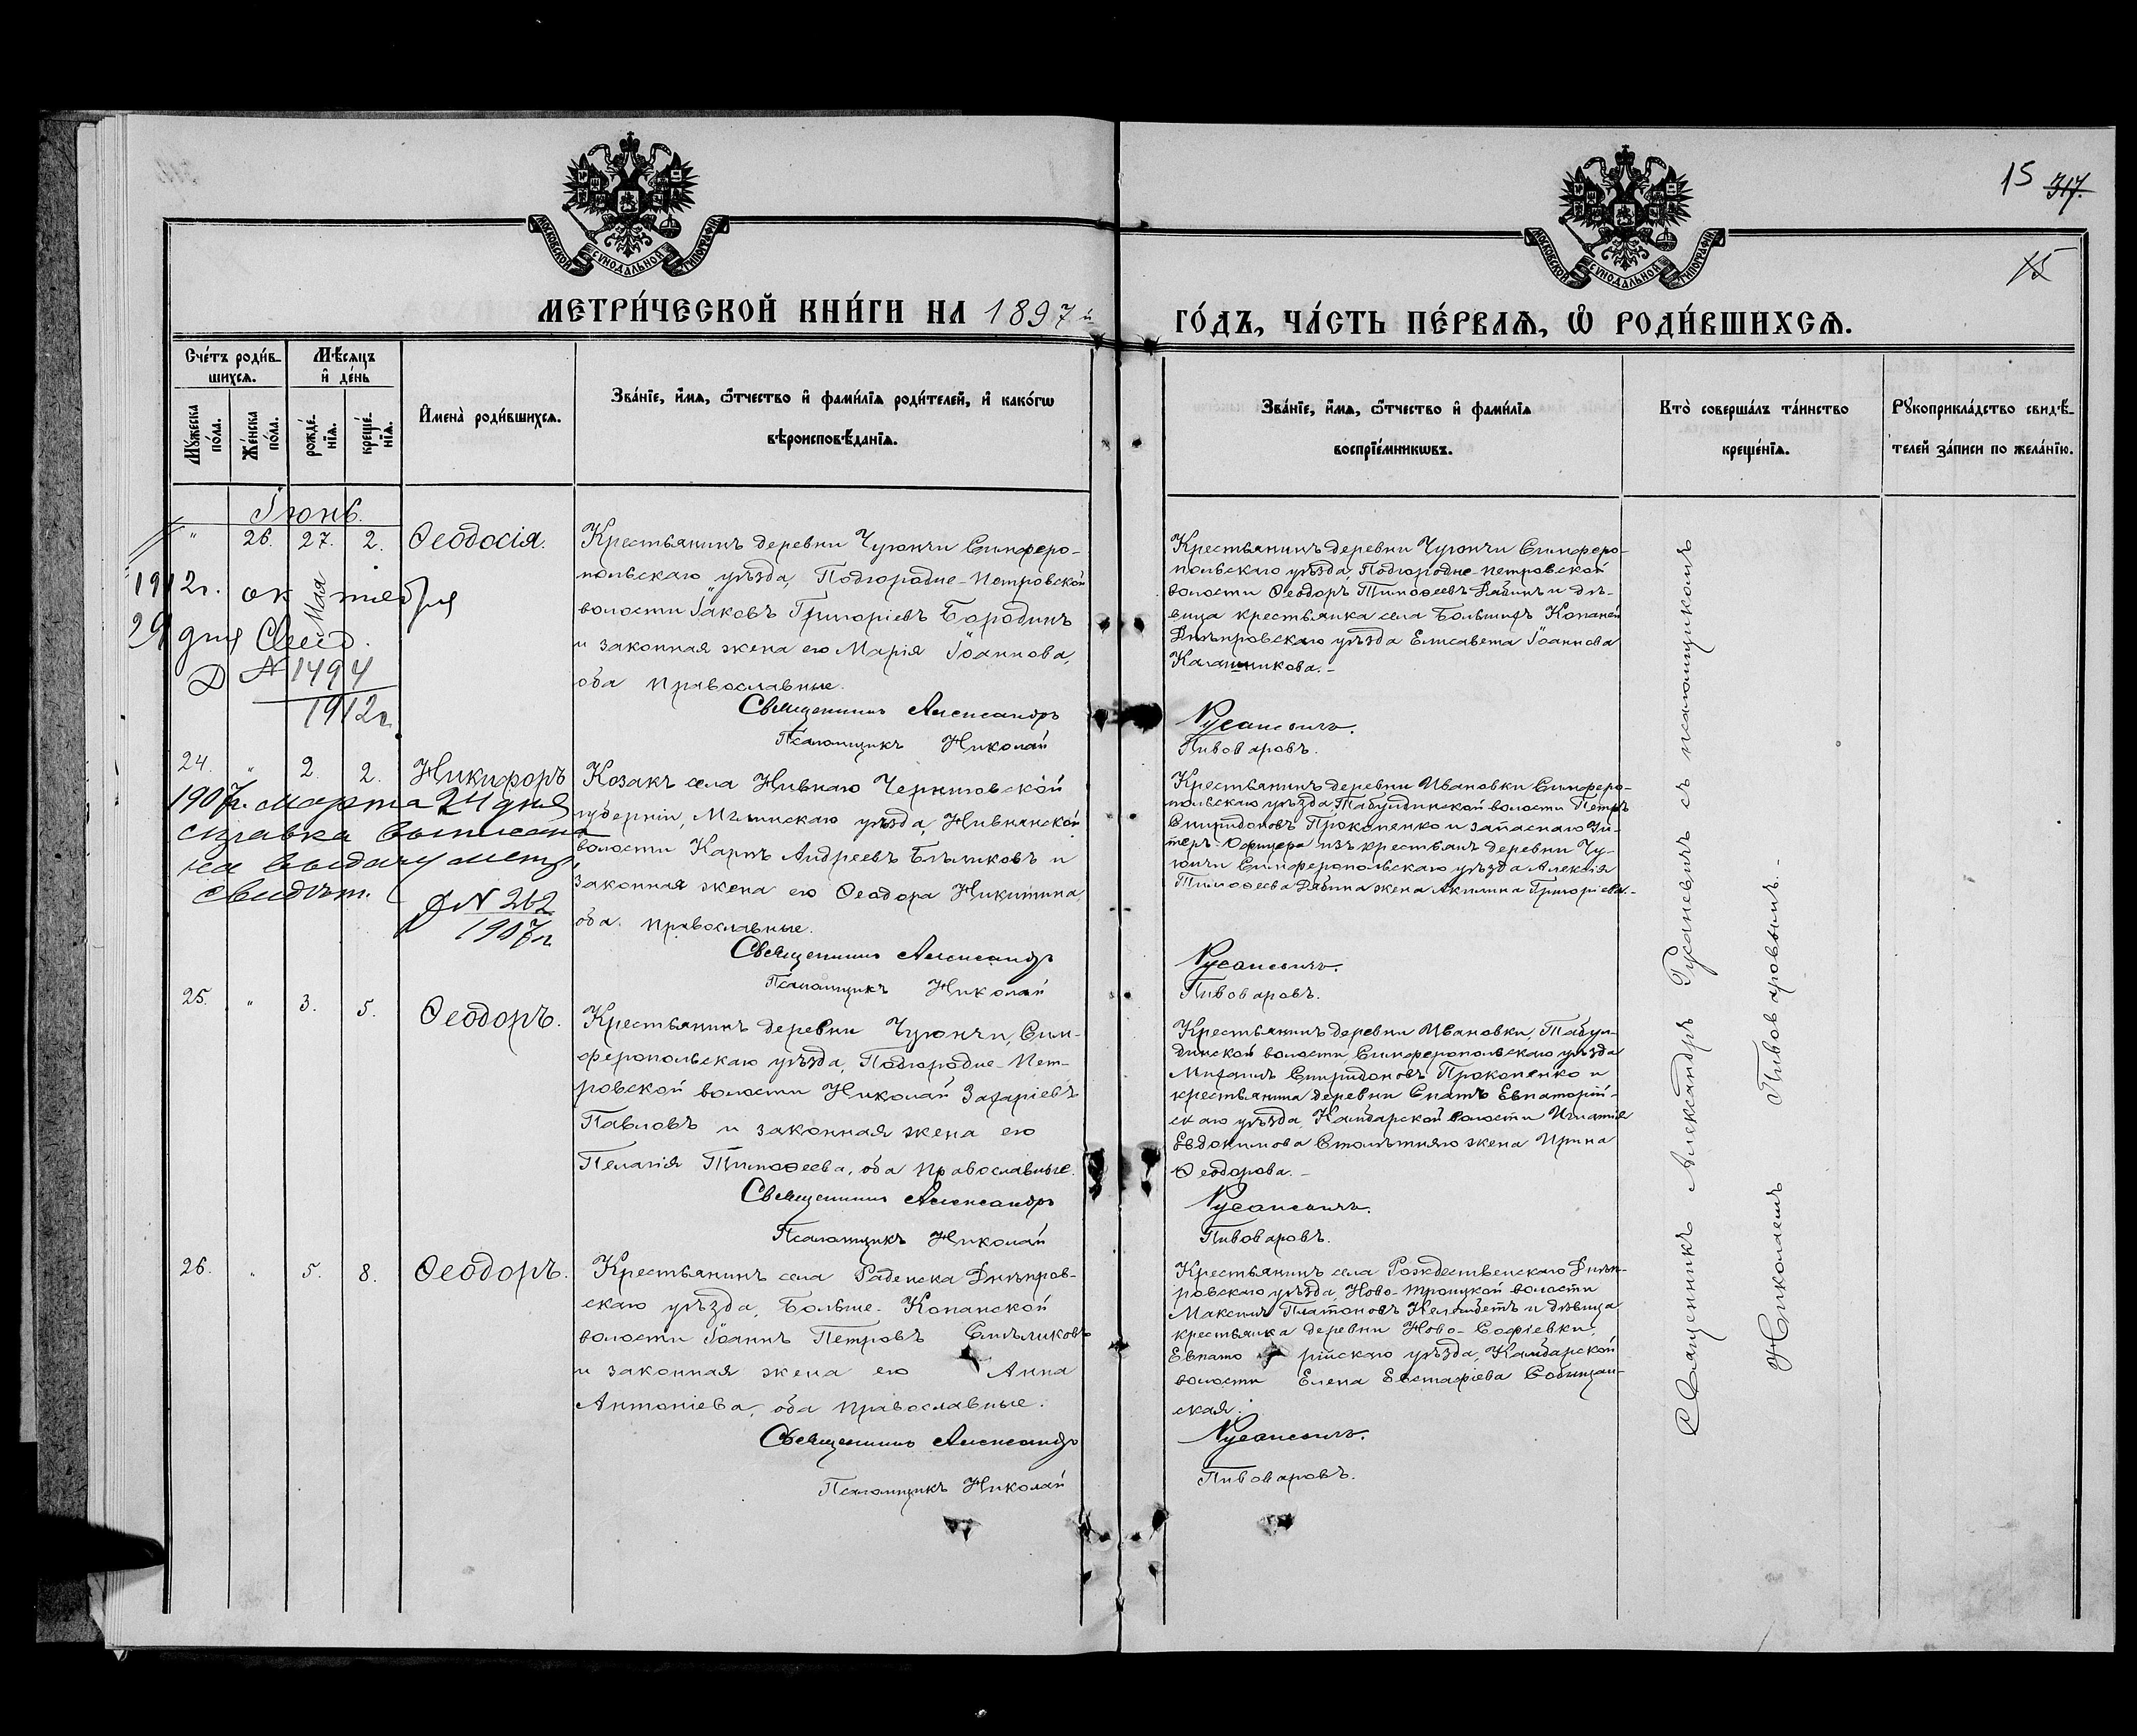 15 317.
15
МОСКОВСКОЙ СѴНОДАЛЬНОЙ ТИПОГРАФІИ
МОСКОВСКОЙ СѴНОДАЛЬНОЙ ТИПОГРАФІИ
МЕТРИ́ЧЕСКОЙ КНИ́ГИ НА 1897й
ГО́ДЪ, ЧА́СТЬ ПЕ́РВАѦ, Ѽ РОДИ́ВШИХСѦ.
Сче́тъ роди́в-
шихсѧ.
Мѣ́сѧцъ
и҆ де́нь
Мꙋ́жеска
по́ла.
Же́нска
по́ла.
рожде́-
нїѧ.
креще́-
нїѧ.
И҆мена̀ роди́вшихсѧ.
Зва́нїе, и҆́мѧ, ѻ҆́тчество и҆ фами́лїѧ роди́телей, и҆ како́гѡ
вѣроисповѣ́данїѧ.
Зва́нїе, и҆́мѧ, ѻ҆́тчество и҆ фами́лїѧ
воспрїе́мникѡвъ.
Кто̀ соверша́лъ та́инство
креще́нїѧ.
Рꙋкоприкла́дство свидѣ́-
телей за́писи по жела́нїю.
Іюнь.
" 26. 27. 2. Ѳеодосія.
Мая
Крестьянинъ деревни Чуюнчи Симферо-
польскаго уѣзда, Подгородне-Петровской
волости Іаковъ Григоріевъ Бородинъ
и законная жена его Марія Іоаннова,
оба православные.
Священникъ Александръ
Псаломщикъ Николай
Крестьянинъ деревни Чуюнчи Симферо-
польскаго уѣзда, Подгородне-петровской
волости Ѳеодоръ Тимоѳеевъ Рябинъ и дѣ-
вица крестьянка села Большихъ Копаней
Днѣпровскаго уѣзда Елисавета Іоаннова
Калашникова.-
Русаневичъ.
Пивоваровъ.
1912г. октября
29 дня Свид.
Д № 1494
1912г.
24. " 2. 2. Никифоръ
Козакъ села Нивнаго Черниговской
губерніи, Мглинскаго уѣзда, Нивнянской
волости Карпъ Андреевъ Бѣликовъ и
законная жена его Ѳеодора Никитина,
оба православные.
Священникъ Александръ
Псаломщикъ Николай
Крестьянинъ деревни Ивановки Симферо-
польскаго уѣзда Табулдинской волости Петръ
Спиридоновъ Прокопенко и запаснаго Ун-
теръ-Офицера изъ крестьянъ деревни Чу-
юнчи Симферопольскаго уѣзда Алексія
Тимоѳеева Рябина жена Акилина Григоріева.-
Русаневичъ.
Пивоваровъ.
1907г. Марта 24 дня
справка выписана
на выдачу метр.
свидѣт.
Д № 262
1907г.
25. " 3. 5. Ѳеодоръ.
Крестьянинъ деревни Чуюнчи, Сим-
феропольскаго уѣзда, Подгородне-Пет-
ровской волости Николай Захаріевъ
Павловъ и законная жена его
Пелагія Тимоѳеева, оба православные.
Священникъ Александръ
Псаломщикъ Николай
Крестьянинъ деревни Ивановки, Табул-
динской волости, Симферопольскаго уѣзда
Михаилъ Спиридоновъ Прокопенко и
крестьянина деревни Скатъ Евпаторій-
скаго уѣзда, Камбарской волости Игнатія
Евдокимова Столѣтняго жена Ирина
Ѳеодорова.-
Русаневичъ.
Пивоваровъ.
26. " 5. 8. Ѳеодоръ.
Крестьянинъ села Раденска Днѣпров-
скаго уѣзда, Больше-Копанской
волости Іоаннъ Петровъ
и законная жена его Анна
Антоніева, оба православные.
Священникъ Александръ
Псаломщикъ Николай
Крестьянинъ села Рождественскаго Днѣп-
ровскаго уѣзда, Ново-Троицкой волости
Максимъ Платоновъ и дѣвица
крестьянка деревни Ново-Софіевки,
Евпаторійскаго уѣзда, Камбарской
волости Елена Евстафіева Собищан-
ская.
Русаневичъ.
Пивоваровъ.
Священникъ Александръ Русаневичъ съ псаломщикомъ
Николаемъ Пивоваровымъ.-